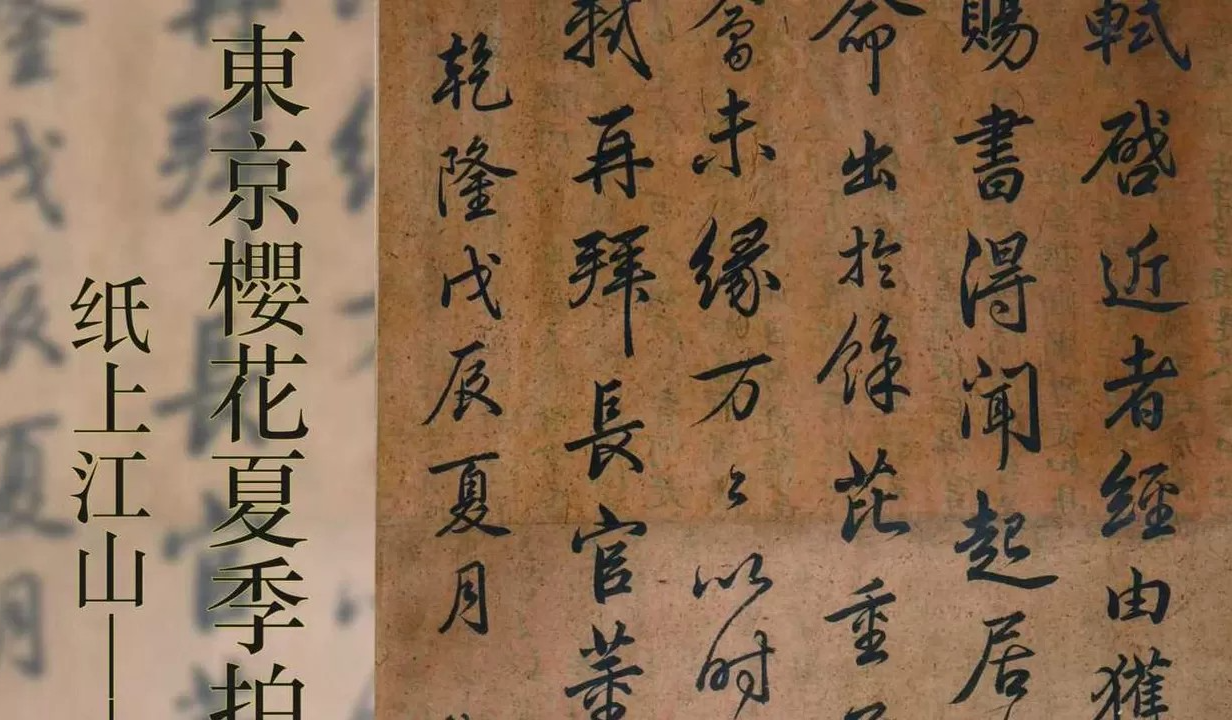 軾啓近者經由獲
賜書得聞起居
命出於餘芘重
會未緣万々以时
軾再拜長官董
乾隆戊辰夏月
東京櫻花夏季拍
纸上江山——